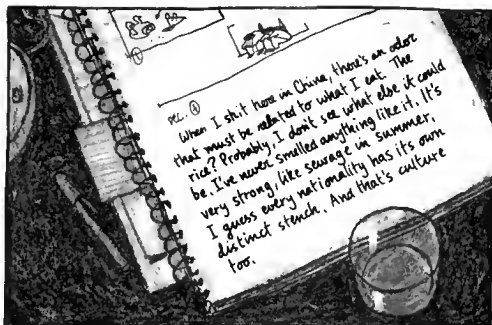 DEC. ④
When I shit here in China, there's an odor
that must be related to what I eat. The
rice? Probably, I don't see what else it could
be. I've never smelled anything like it. It's
very strong, like sewage in summer.
I guess every nationality has its own
distinct stench. And that's culture
too.